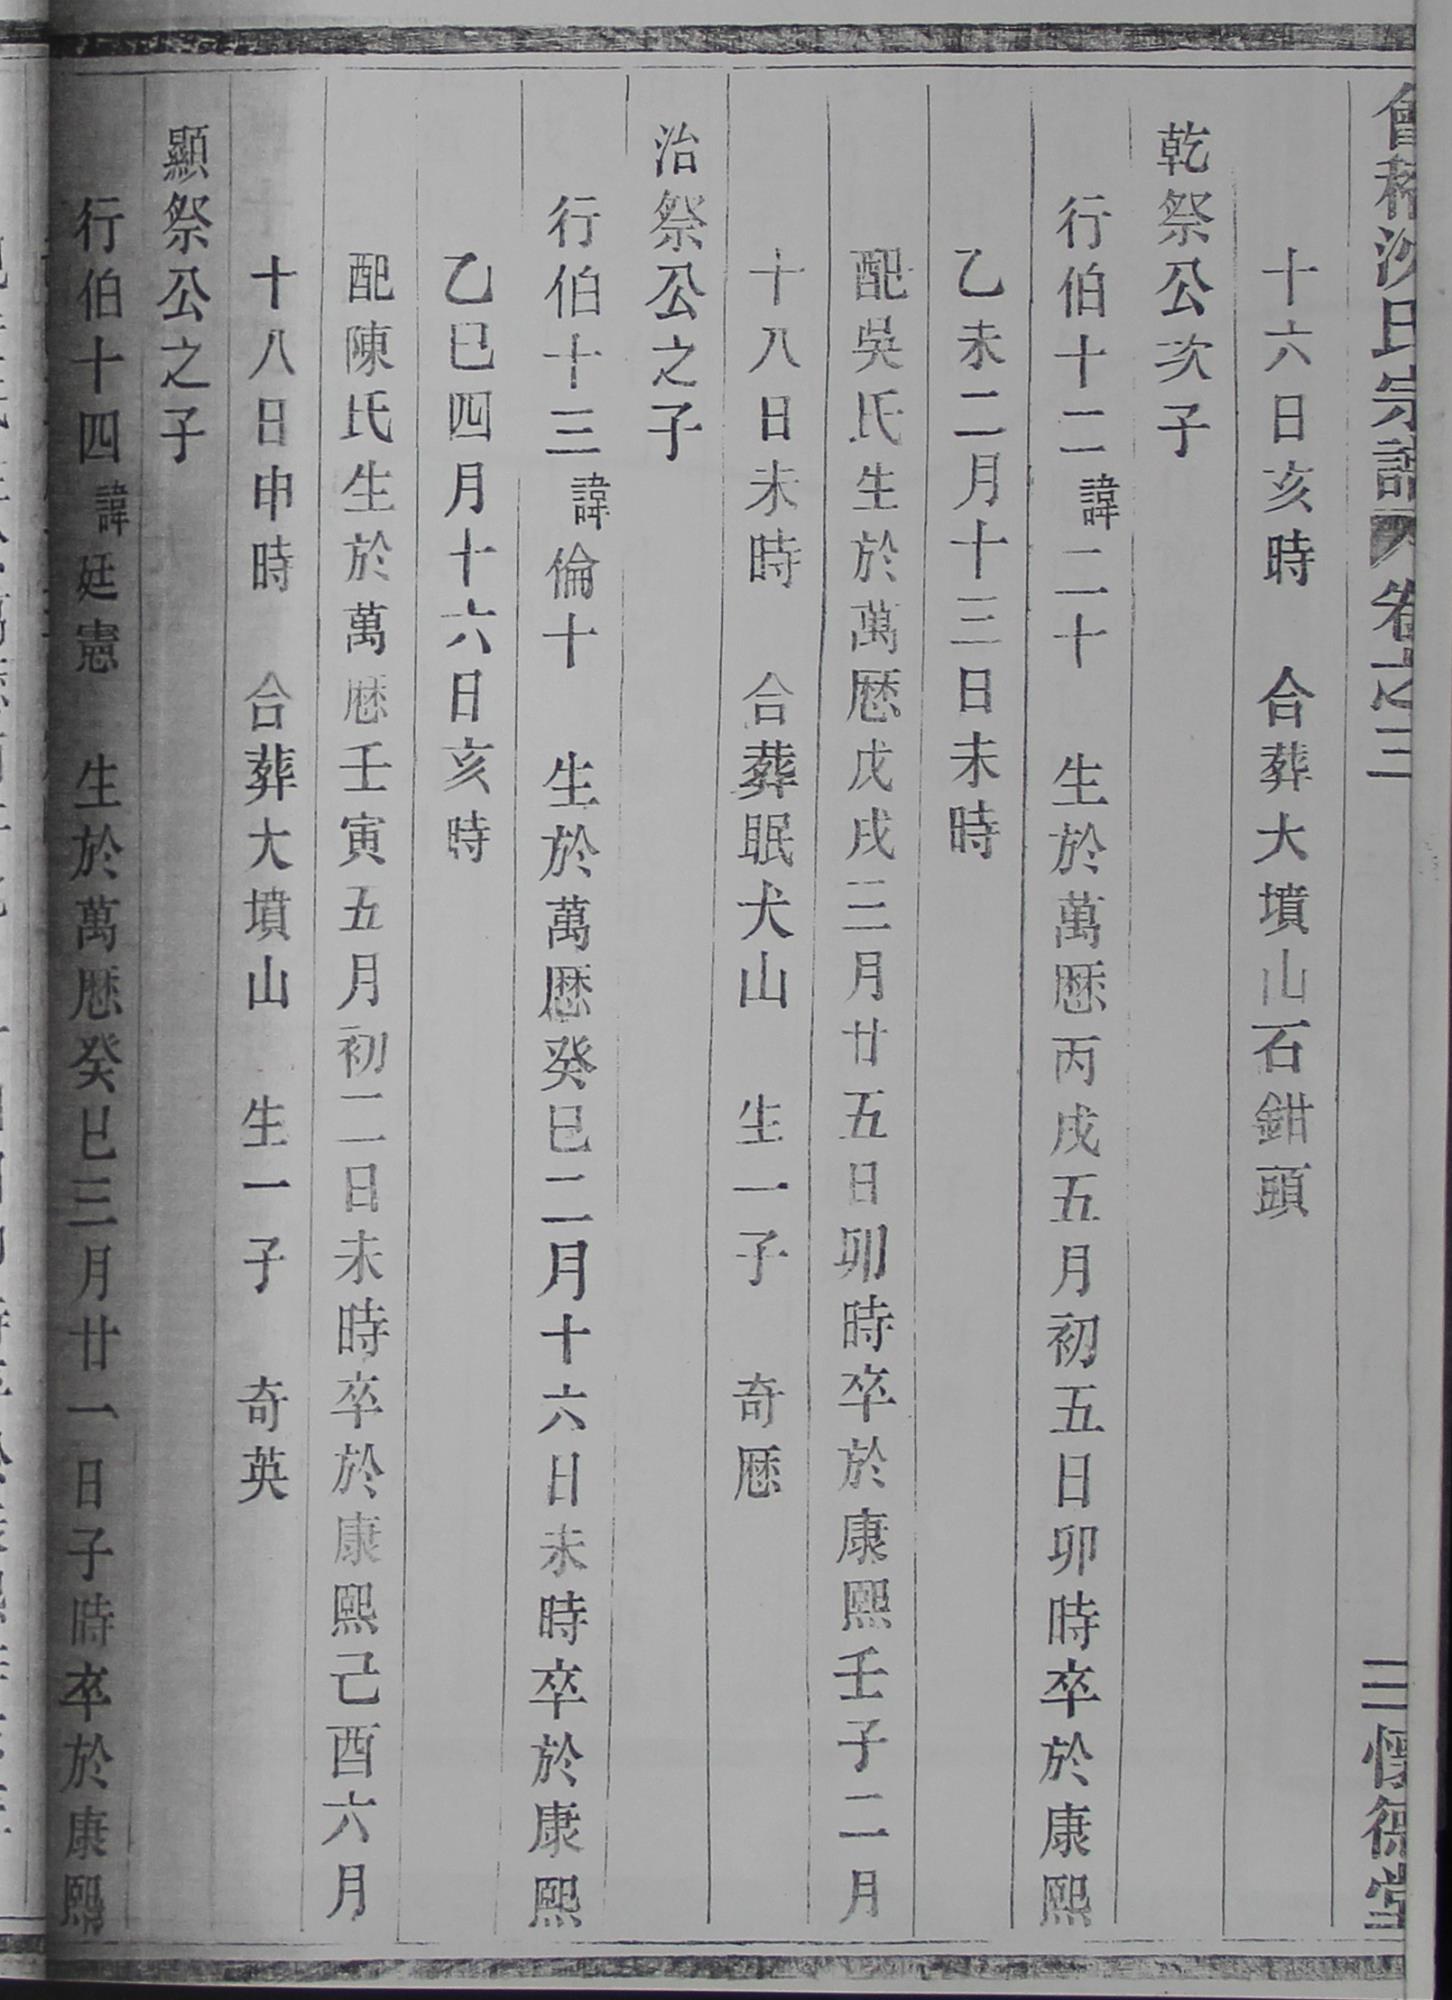 會稽沈氏宗譜 卷之三 二 懷德堂
十六日亥時 合葬大墳山石鉗頭
乾祭公次子
行伯十二諱二十 生於萬厯丙戌五月初五日卯時卒於康熙
乙未二月十三日未時
配吳氏生於萬厯戊戌三月廿五日卯時卒於康熙壬子二月
十八日未時 合葬眠犬山 生一子 奇厯
治祭公之子
行伯十三諱倫十 生於萬厯癸巳二月十六日未時卒於康熙
乙巳四月十六日亥時
配陳氏生於萬厯壬寅五月初二日未時卒於康熙己酉六月
十八日申時 合葬大墳山 生一子 奇英
顯祭公之子
行伯十四諱廷憲 生於萬厯癸巳三月廿一日子時卒於康熙